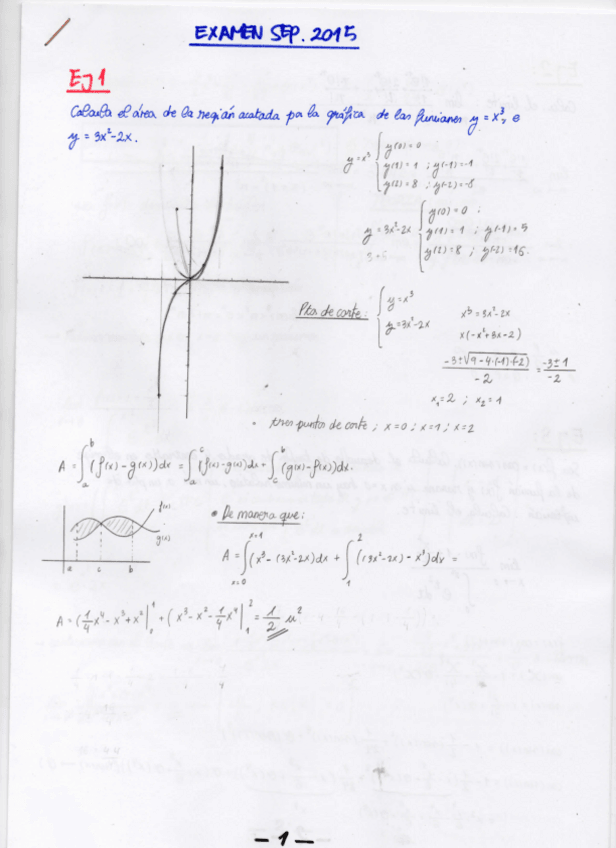 EXAMEN SEP. 2015
EJ 1
Calcula el área de la región acotada por la gráfica de las funciones y = x³, e
y = 3x²-2x.
y=x³ { y(0)=0
y(1)=1 ; y(-1)=-1
y(2)=8 ; y(-2)=-8
y=3x²-2x { y(0)=0 ;
y(1)=1 ; y(-1)=5
y(2)=8 ; y(-2)=16.
3+6
Ptos de corte: { y=x³
y=3x²-2x
x³=3x²-2x
x(-x²+3x-2)
-3±√9-4·(-1)·(-2) / -2 = -3±1 / -2
x₁=2 ; x₂=1
• tres puntos de corte ; x=0 ; x=1 ; x=2
A = ∫ₐᵇ (f(x)-g(x))dx = ∫ₐᶜ (f(x)-g(x))dx + ∫꜀ᵇ (g(x)-f(x))dx.
f(x)
g(x)
a c b
• De manera que:
x=1 2
A = ∫ (x³-(3x²-2x)dx + ∫ ((3x²-2x)-x³)dx =
x=0 1
A = (1/4 x⁴ - x³ + x² |₀¹ + (x³ - x² - 1/4 x⁴ |₁² = 1/2 u²
- 1 -